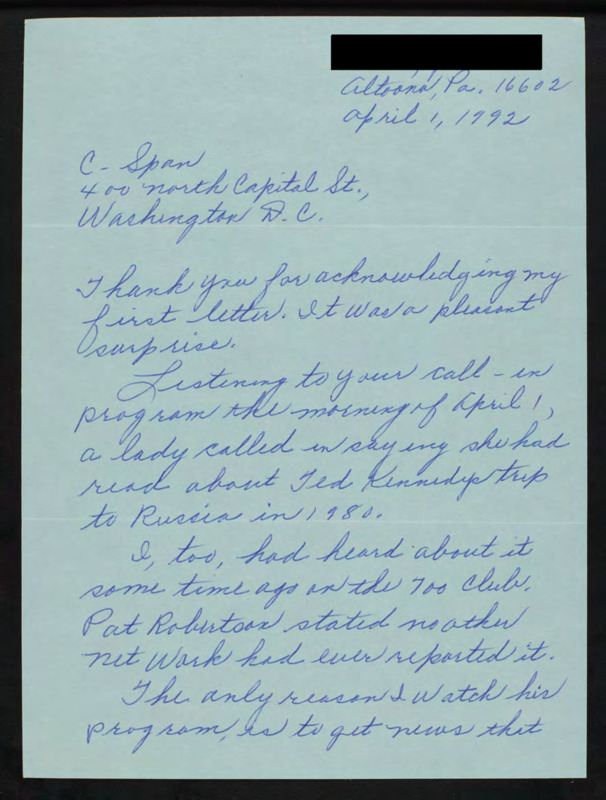 Altoona, Pa. 16602
April 1, 1992
C-Span
400 North Capital St.,
Washington D.C.
Thank you for acknowledging my
first letter. It was a pleasant
surprise.
Listening to your call-in
program the morning of April 1,
a lady called in saying she had
read about Ted Kennedys trip
to Russia in 1980.
I, too, had heard about it
some time ago on the 700 Club.
Pat Robertson stated no other
net work had ever reported it.
The only reason I watch his
program, is to get news that